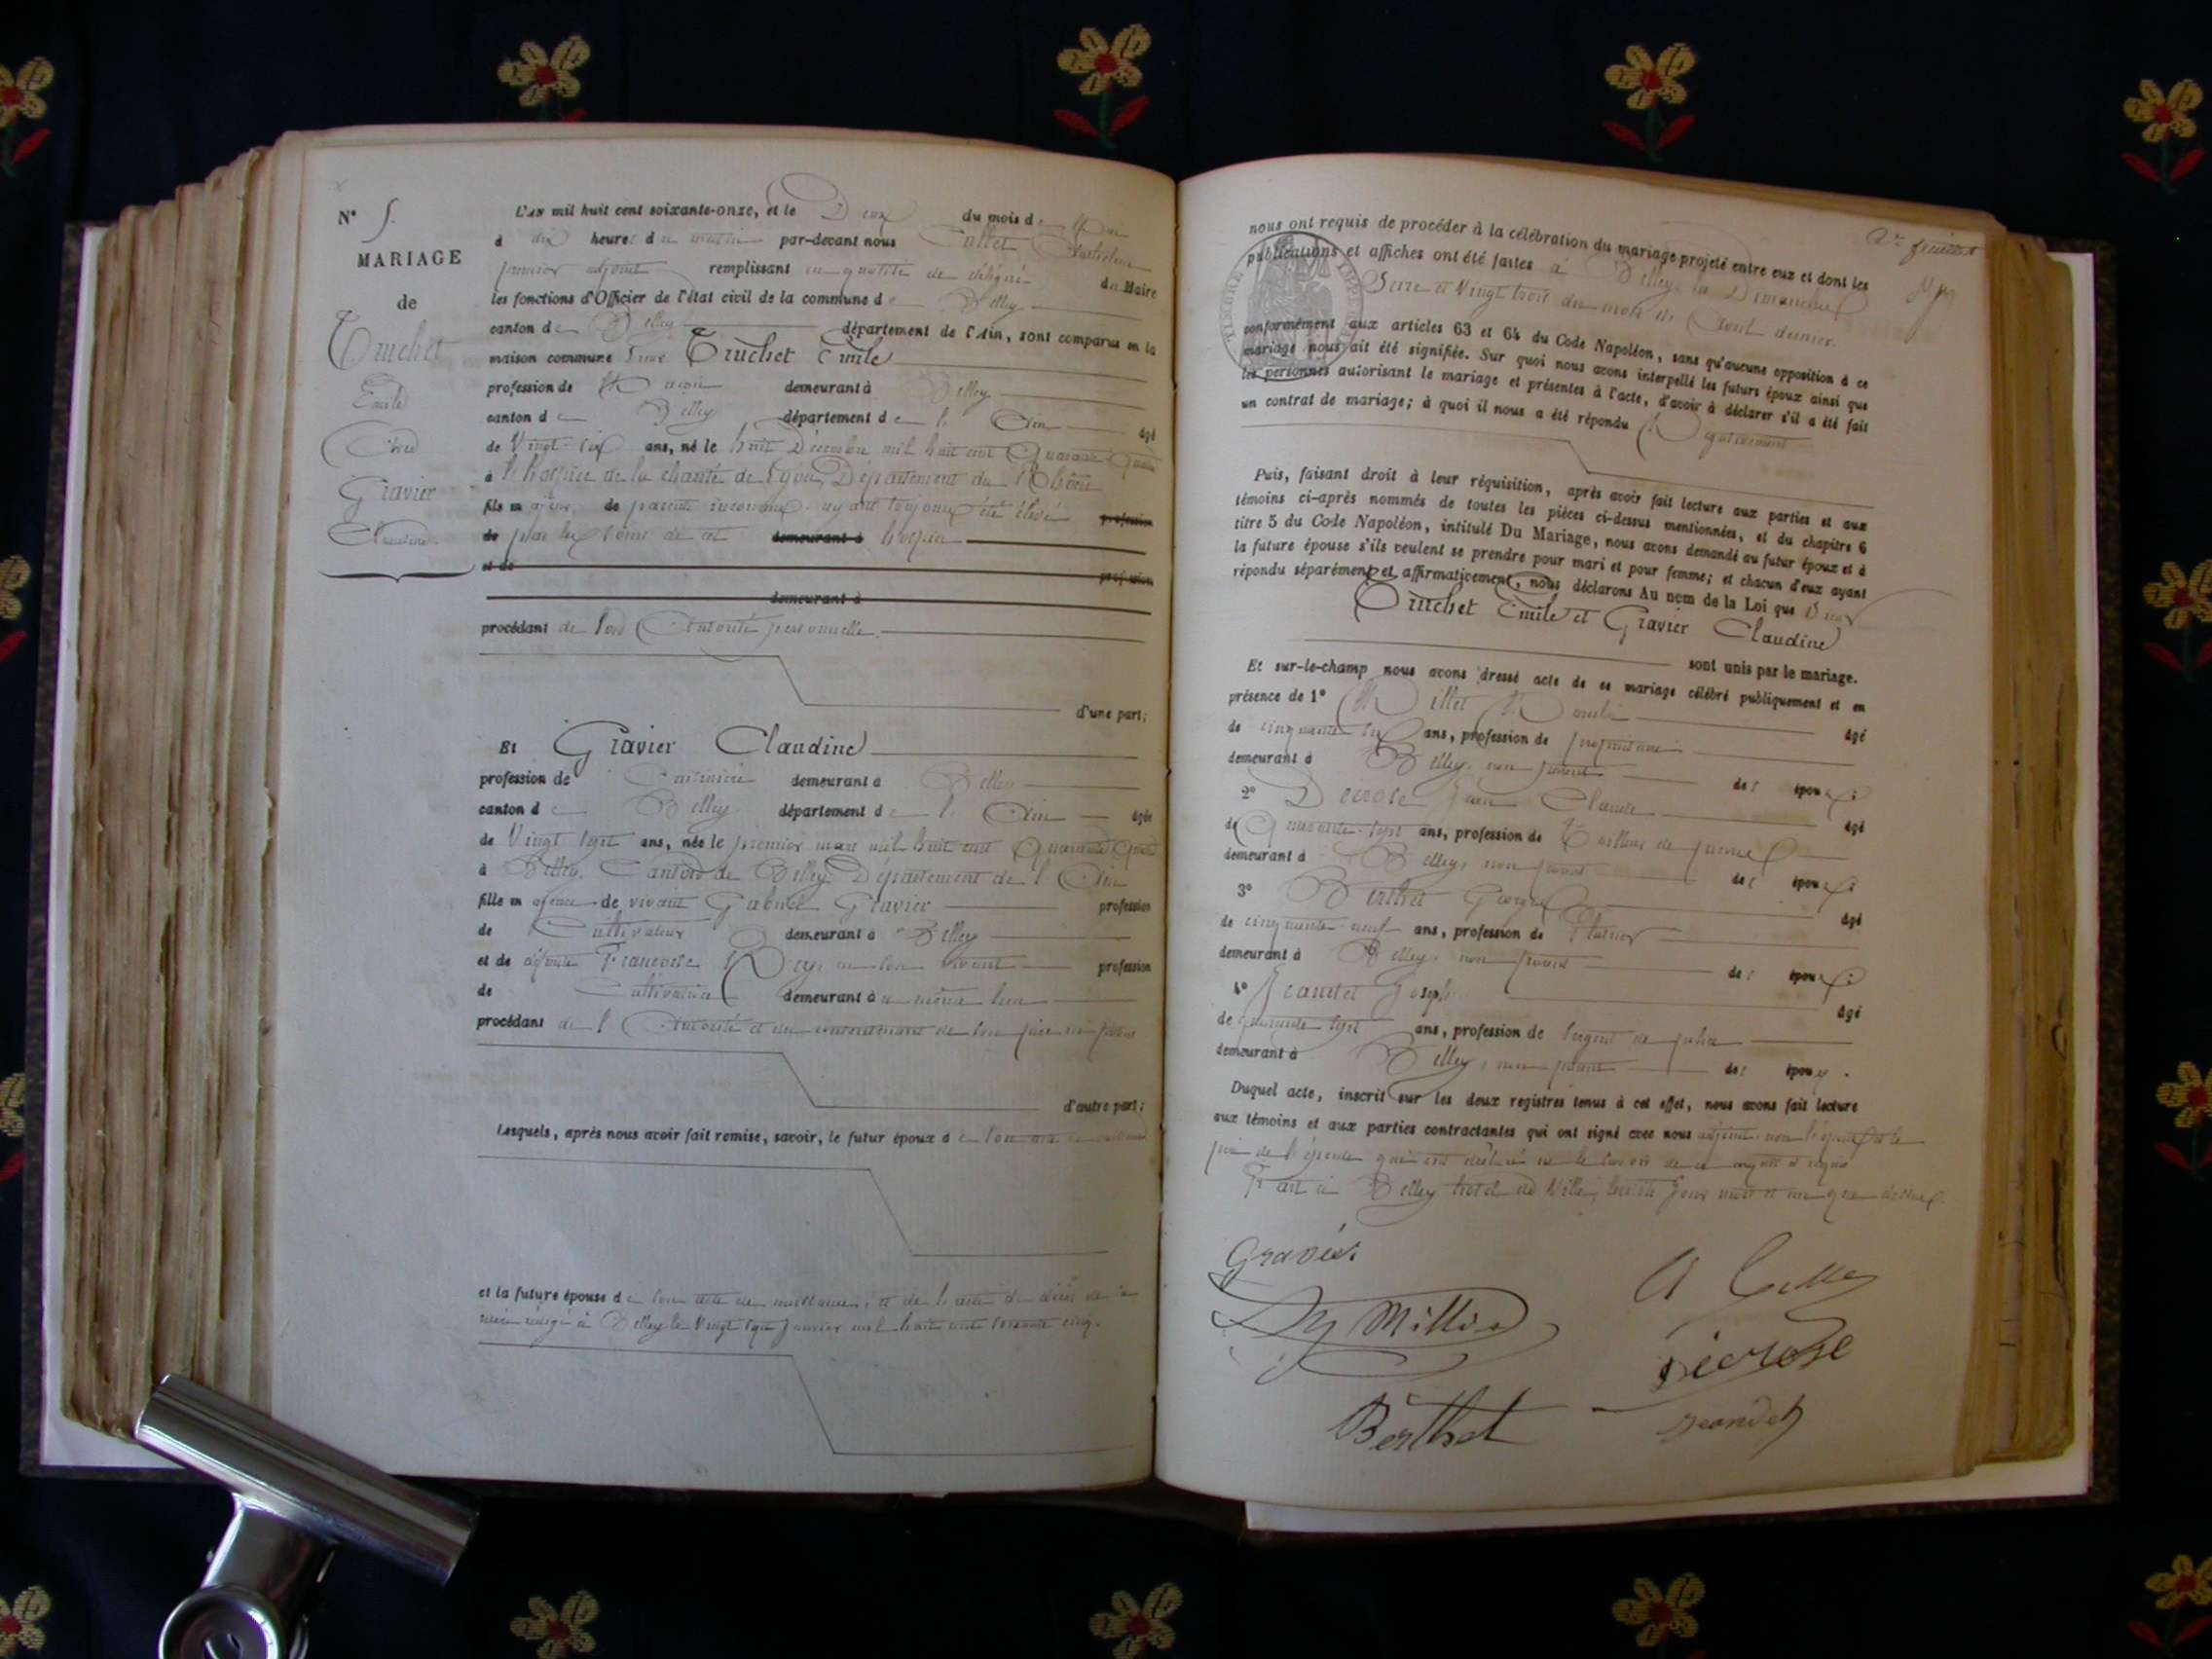 N° 5.
MARIAGE
de
Truchet
Emile
Avec
Gravier
Claudine
L'AN mil huit cent soixante-onze, et le Deux du mois de
à dix heures du matin par-devant nous
premier adjoint remplissant en qualité de délégué du Maire
les fonctions d'Officier de l'état civil de la commune de Belley
canton de Belley département de l'Ain, sont comparus en la
maison commune Sieur Truchet Emile
profession de Maçon demeurant à Belley
canton de Belley département de l'Ain âgé
de Vingt-six ans, né le huit Décembre mil huit cent Quarante Quatre
à l'hospice de la charité de Lyon, Département du Rhône
fils majeur de parents inconnus, ayant toujours été élevé profession
de par les soins de cet demeurant à hospice
et de profession
demeurant à
procédant de son Autorité personnelle.
d'une part;
Et Gravier Claudine
profession de demeurant à Belley
canton de Belley département de l'Ain âgée
de Vingt sept ans, née le premier mars mil huit cent Quarante Quatre
à Belley, Canton de Belley, Département de l'Ain
fille majeure de vivant Gabriel Gravier profession
de Cultivateur demeurant à Belley
et de défunte Francoise Dey, en son vivant profession
de Cultivatrice demeurant au même lieu
procédant de l'Autorité et du consentement de son père ici présent
d'autre part;
Lesquels, après nous avoir fait remise, savoir, le futur époux de son acte de naissance
et la future épouse de son acte de naissance, et de l'acte de décès de sa
mère rédigé à Belley le Vingt sept Janvier mil huit cent soixante cinq.
2me feuillet
nous ont requis de procéder à la célébration du mariage projeté entre eux et dont les
publications et affiches ont été faites à Belley les Dimanches
Seize et Vingt trois du mois d'Avril dernier.
conformément aux articles 63 et 64 du Code Napoléon, sans qu'aucune opposition à ce
mariage nous ait été signifiée. Sur quoi nous avons interpellé les futurs époux ainsi que
les personnes autorisant le mariage et présentes à l'acte, d'avoir à déclarer s'il a été fait
un contrat de mariage; à quoi il nous a été répondu Négativement
Puis, faisant droit à leur réquisition, après avoir fait lecture aux parties et aux
témoins ci-après nommés de toutes les pièces ci-dessus mentionnées, et du chapitre 6
titre 5 du Code Napoléon, intitulé Du Mariage, nous avons demandé au futur époux et à
la future épouse s'ils veulent se prendre pour mari et pour femme; et chacun d'eux ayant
répondu séparément et affirmativement, nous déclarons Au nom de la Loi que Sieur
Truchet Emile et Gravier Claudine
sont unis par le mariage.
Et sur-le-champ nous avons dressé acte de ce mariage célébré publiquement et en
présence de 1° âgé
de cinquante six ans, profession de propriétaire
demeurant à Belley, non parent des époux;
2° Decrose Jean Claude âgé
de Quarante-sept ans, profession de Tailleur de pierres
demeurant à Belley, non parent des époux;
3° Berthet Georges âgé
de cinquante-neuf ans, profession de Platrier
demeurant à Belley, non parent des époux;
4° Jeandet Joseph âgé
de quarante sept ans, profession de sergent de police
demeurant à Belley, non parent des époux.
Duquel acte, inscrit sur les deux registres tenus à cet effet, nous avons fait lecture
aux témoins et aux parties contractantes qui ont signé avec nous adjoint non l'épouse
père de l'épouse qui ont déclaré ne le savoir de ce enquis et requis
Fait à Belley hotel de Ville, les dits jour mois et an que dessus.
Gravier
Decrose
Berthet
Jeandet